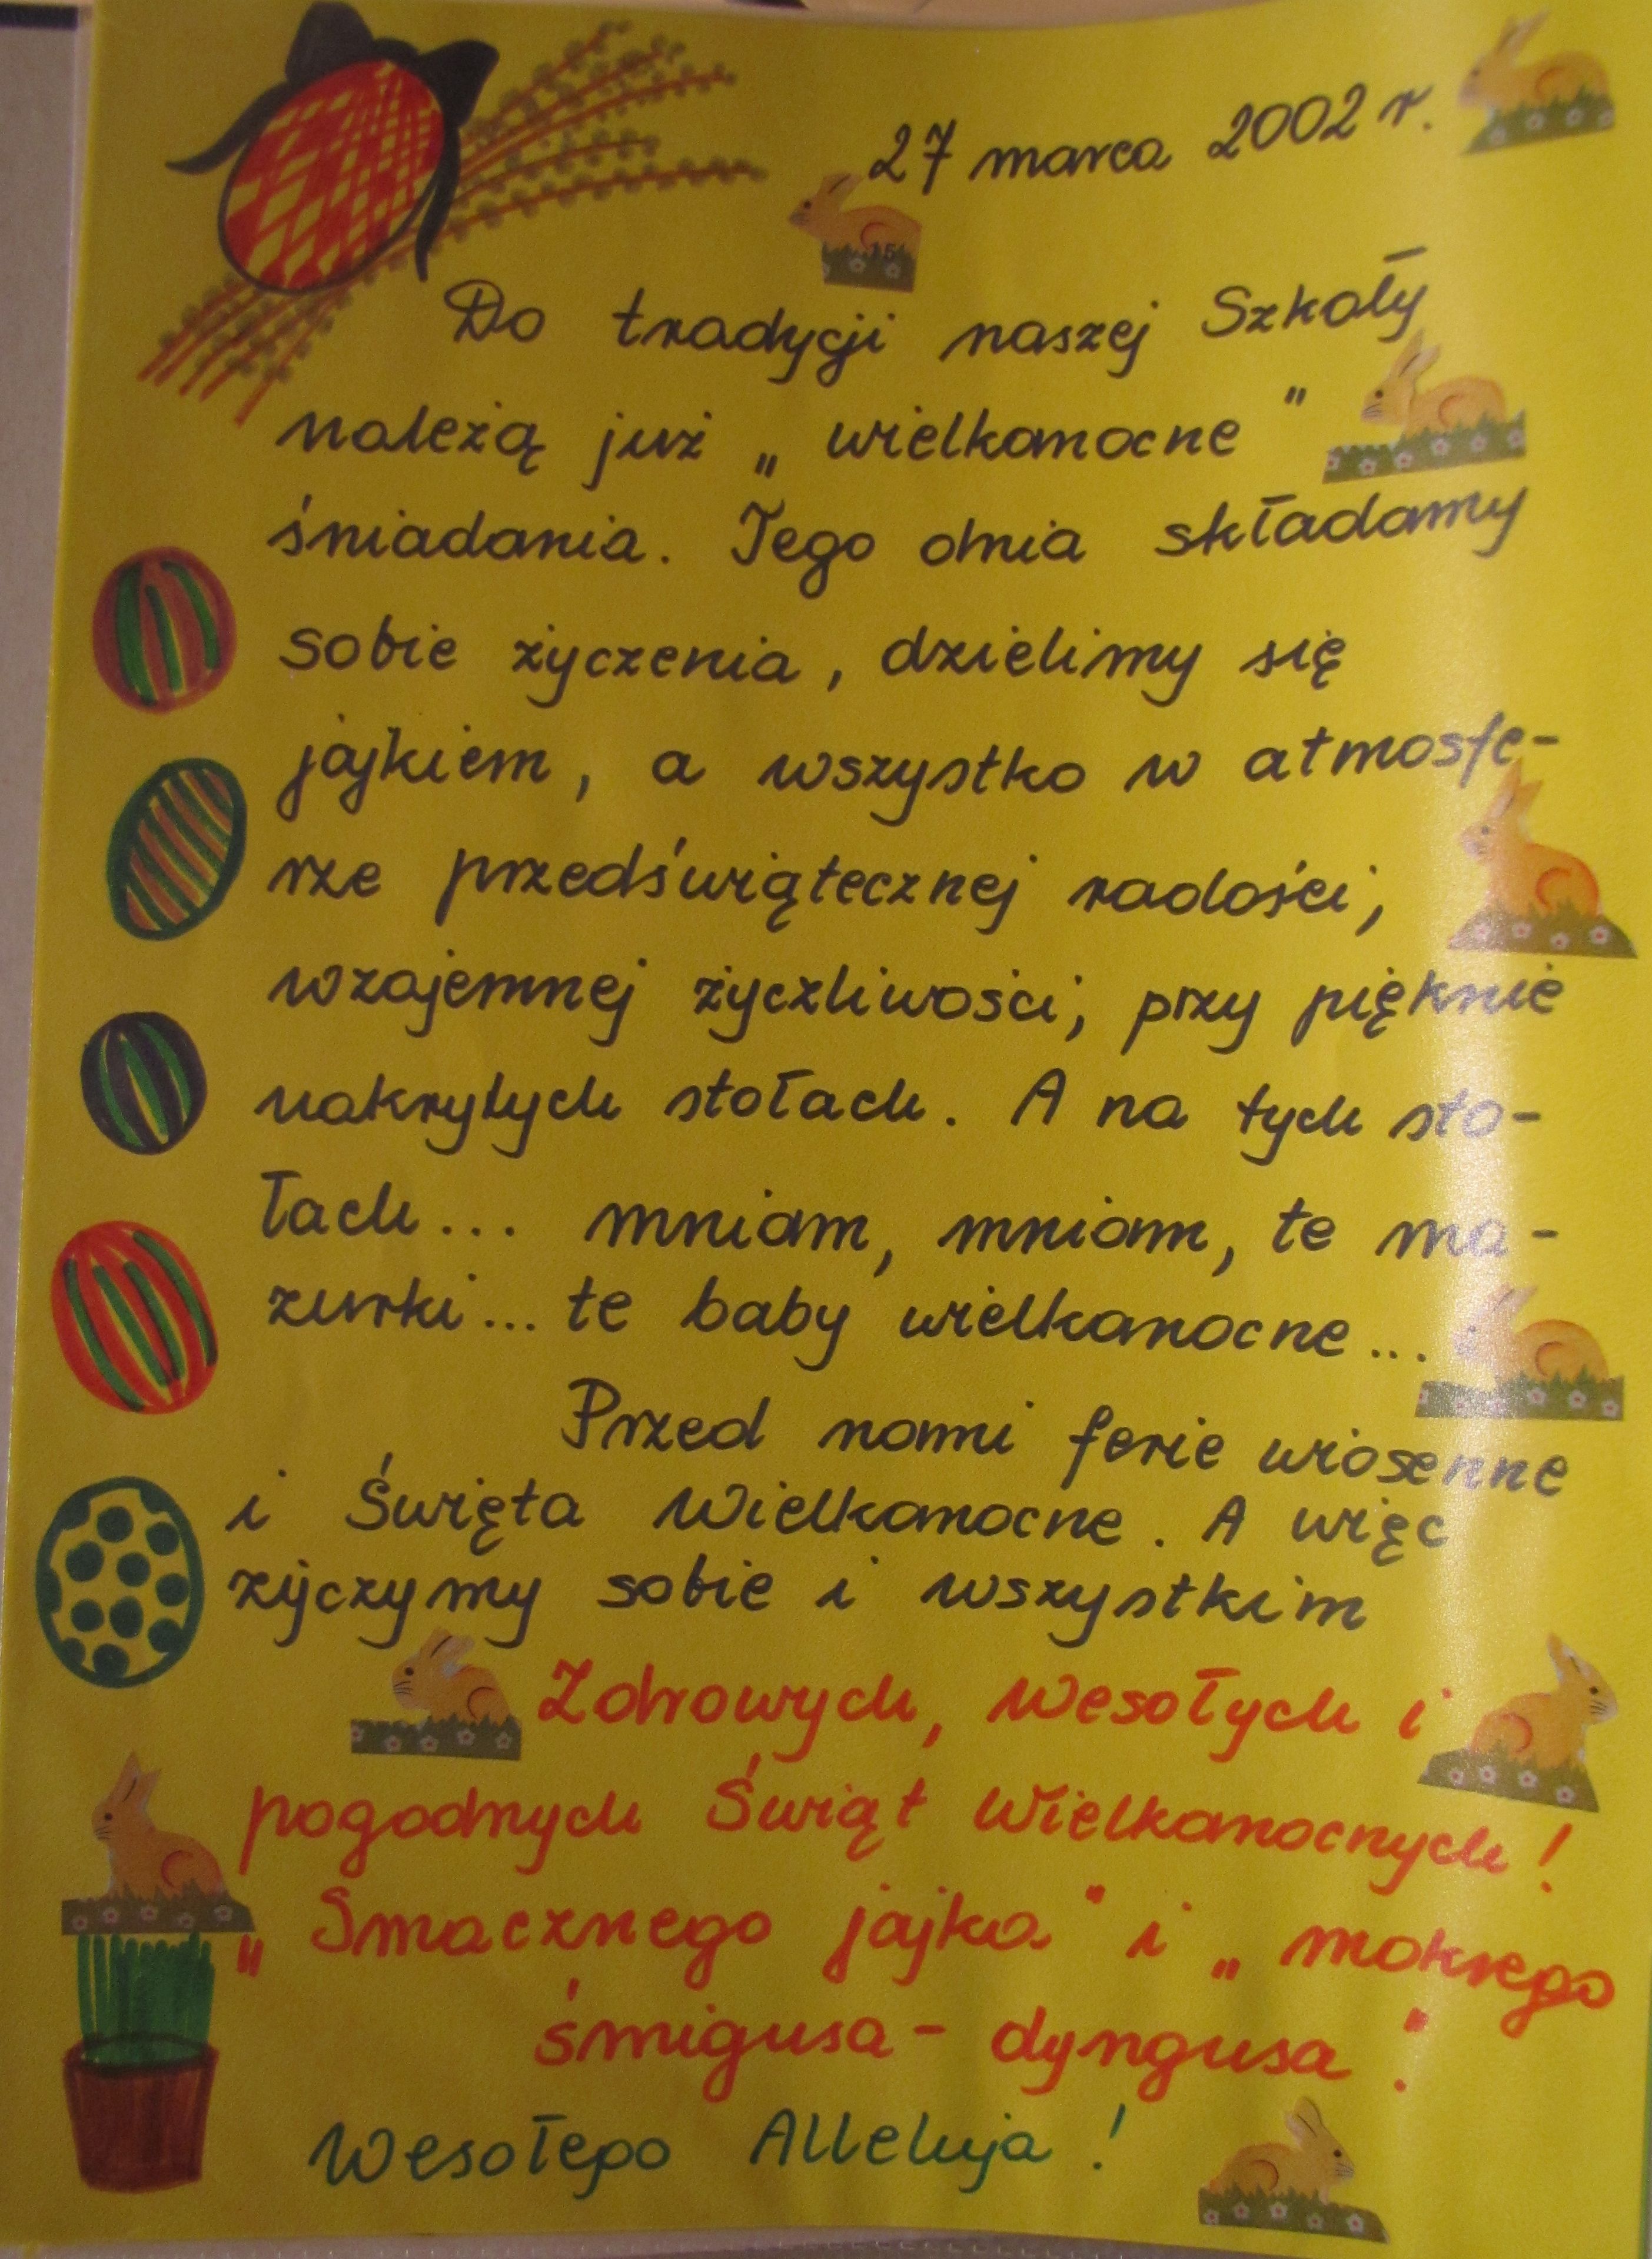 27 marca 2002 r.
Do tradycji naszej Szkoły
należą już „wielkanocne"
śniadania. Tego dnia składamy
sobie życzenia, dzielimy się
jajkiem, a wszystko w atmosfe-
rze przedświątecznej radości,
wzajemnej życzliwości, przy pięknie
nakrytych stołach. A na tych sto-
łach... mniam, mniam, te ma-
zurki... te baby wielkanocne...
Przed nami ferie wiosenne
i Święta Wielkanocne. A więc
życzymy sobie i wszystkim
Zdrowych, Wesołych i
pogodnych Świąt Wielkanocnych!
„Smacznego jajka" i „mokrego
śmigusa-dyngusa".
Wesołego Alleluja!